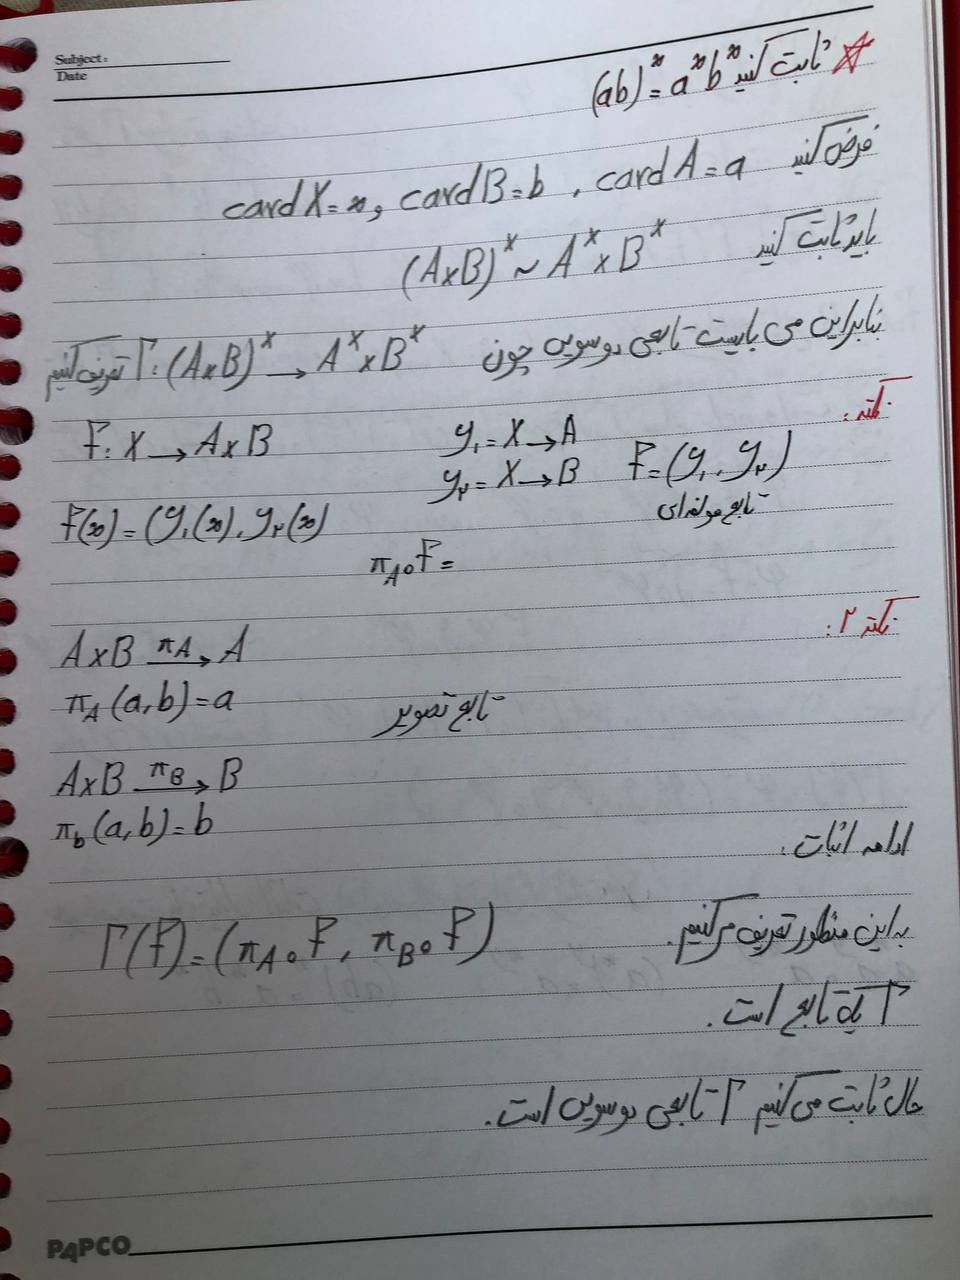 Subject:
Date
ثابت کنید (ab)^x = a^x b^x
فرض کنید card A = a , card B = b , card X = x
باید ثابت کنید (A×B)^X ~ A^X × B^X
بنابراین می بایست تابعی دوسویی چون Γ: (A×B)^X → A^X × B^X تعریف کنیم
نکته:
F: X → A×B y₁ = X → A F = (y₁, y₂)
y₂ = X → B
F(x) = (y₁(x), y₂(x)) تابع مولفه‌ای
π_A∘F =
نکته ۲:
A×B –π_A→ A
π_A(a,b) = a تابع تصویر
A×B –π_B→ B
π_b(a,b) = b
ادامه اثبات:
به این منظور تعریف می‌کنیم. Γ(F) = (π_A∘F, π_B∘F)
Γ یک تابع است.
حال ثابت می‌کنیم Γ تابعی دوسویی است.
PAPCO